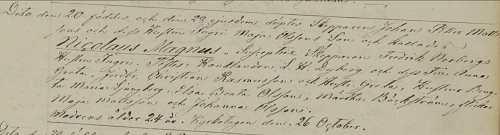 Dito den 20 föddes och den 22 ejusdem döptes Skepparen Johan Petter Matts
sons och dess Hustrus Ingri Maja Olssons Son och kallades
Nicolaus Magnus. Susceptrix Skepparen Fredrik Norbergs
Hustru Ingri. Testes Handlanden A. H. och dess Fru Anna
Greta, Christian Rasmusson och Hustru Greta, Hustrur Brita
Maria Ljungberg, Elsa Beata Olsson, Martha Bäckström,
Maja Mattsson och Johanna Olsson.
Modrens ålder 24 år. Kyrkotagen den 26 October.
Dito den